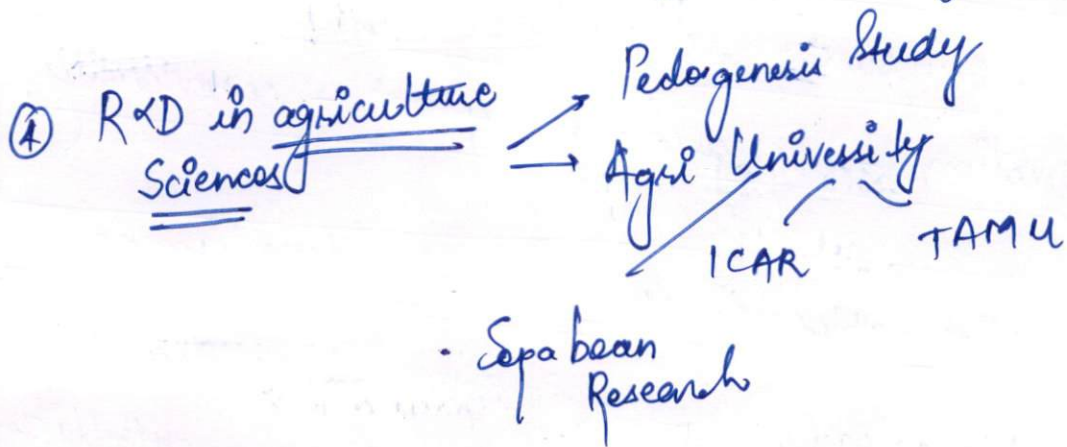 ④ R&D in agriculture
Sciences
Pedogenesis Study
Agri University
ICAR
TAMU
Soya bean
Research